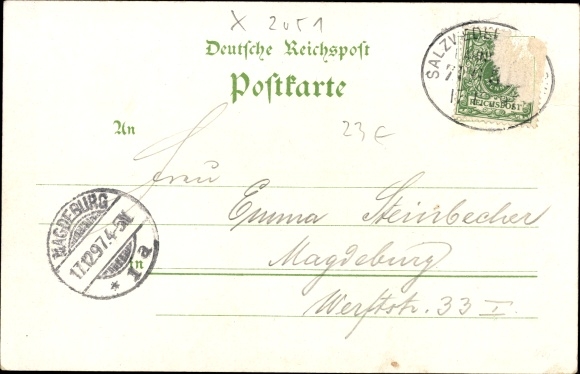 X 2051
Deutsche Reichspost
Postkarte
SALZWEDEL
REICHSPOST
An
23 €
Frau
Emma Steinbecher
MAGDEBURG
17.12.97.4-5N.
* 1a
Magdeburg
in
Werftstr. 33 I